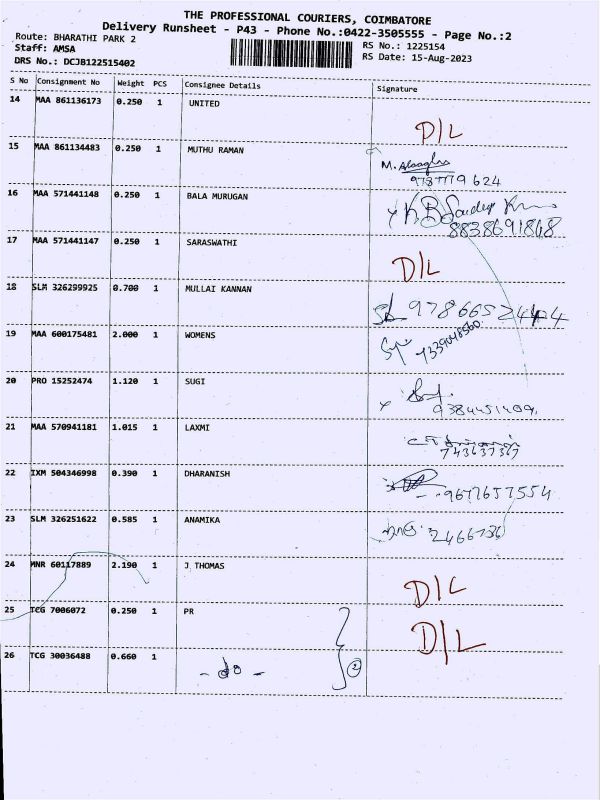 THE PROFESSIONAL COURIERS, COIMBATORE
Delivery Runsheet - P43 - Phone No.:0422-3505555 - Page No.:2
Route: BHARATHI PARK 2
RS No.: 1225154
Staff: AMSA
RS Date: 15-Aug-2023
DRS No.: DCJB122515402
S No Consignment No Weight PCS Consignee Details Signature
14 MAA 861136173 0.250 1 UNITED
D/L
15 MAA 861134483 0.250 1 MUTHU RAMAN
M.
9787779624
16 MAA 571441148 0.250 1 BALA MURUGAN
8838691868
17 MAA 571441147 0.250 1 SARASWATHI
D/L
18 SLM 326299925 0.700 1 MULLAI KANNAN
9786652444
19 MAA 600175481 2.000 1 WOMENS
7339048560
20 PRO 15252474 1.120 1 SUGI
9384451409
21 MAA 570941181 1.015 1 LAXMI
22 IXM 504346998 0.390 1 DHARANISH
9677657554
23 SLM 326251622 0.585 1 ANAMIKA
2466736
24 MNR 60117889 2.190 1 J THOMAS
D/L
25 TCG 7006072 0.250 1 PR
D/L
26 TCG 30036488 0.660 1
- do -
2